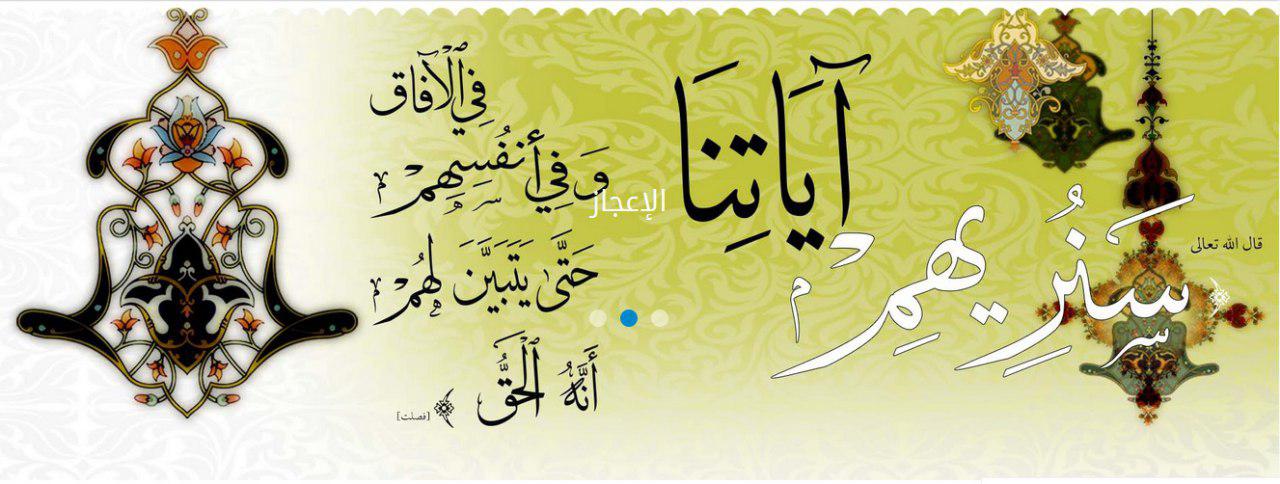 قال الله تعالى
سَنُرِيهِمْ
آيَاتِنَا
فِي الْآفَاقِ
وَفِي أَنفُسِهِمْ
حَتَّىٰ يَتَبَيَّنَ لَهُمْ
أَنَّهُ الْحَقُّ
[فصلت]
الإعجاز